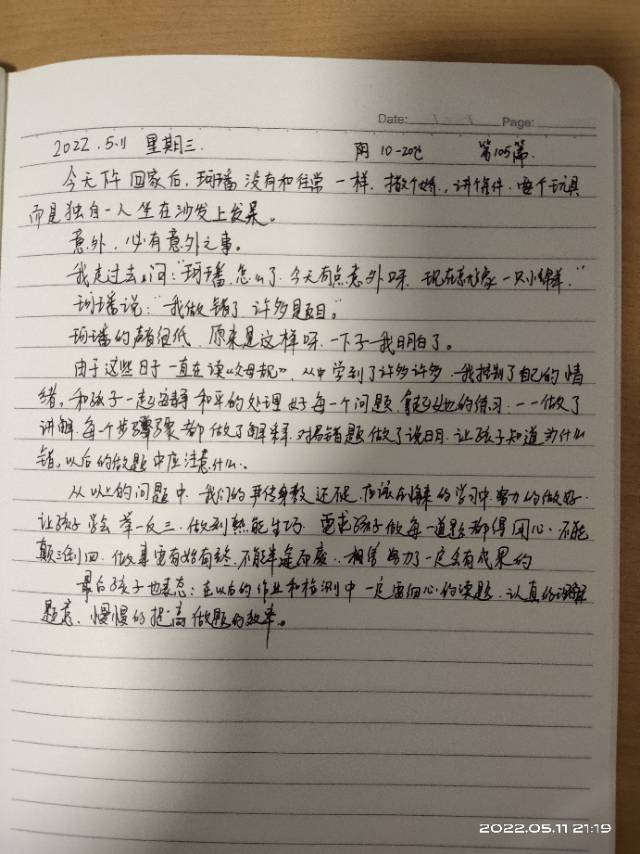 Date: Page:
2022.5.11 星期三. 阴 10-20℃ 第105篇.
今天下午回家后,珂璠没有和往常一样.撒个娇.,讲个条件.要个玩具
而是独自一人坐在沙发上发呆。
意外,必有意外之事。
我走过去问:"珂璠,怎么了.今天有点意外呀.现在像一只小绵羊."
珂璠说:"我做错了许多题目。"
珂璠的声音很低,原来是这样呀.一下子我明白了。
由于这些日子一直在读《父母规》,从中学到了许多许多.我控制了自己的情
绪,和孩子一起安静和平的处理好每一个问题.拿起她的练习.一一做了
讲解.每个步骤都做了解释.对易错题做了说明.让孩子知道为什么
错,以后的做题中应注意什么.
从以上的问题中.我们的言传身教还不足.应该在将来的学习中努力的做好.
让孩子学会举一反三.做到熟能生巧.要求孩子做每一道题都得用心.不能
颠三倒四.做事要有始有终.不能半途而废.相信努力了一定会有成果的
最后孩子也表态:在以后的作业和检测中一定要细心的读题.认真的理解
题意.慢慢的提高做题的效率。
2022.05.11 21:19